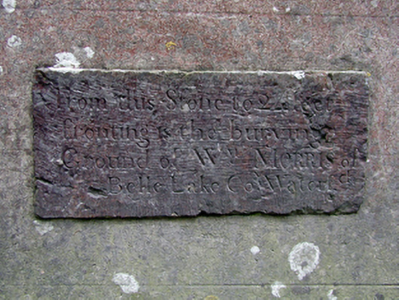 from this Stone to 24 feet
fronting is the burying
Ground of Wm MORRIS of
Belle Lake Co. Waterfd